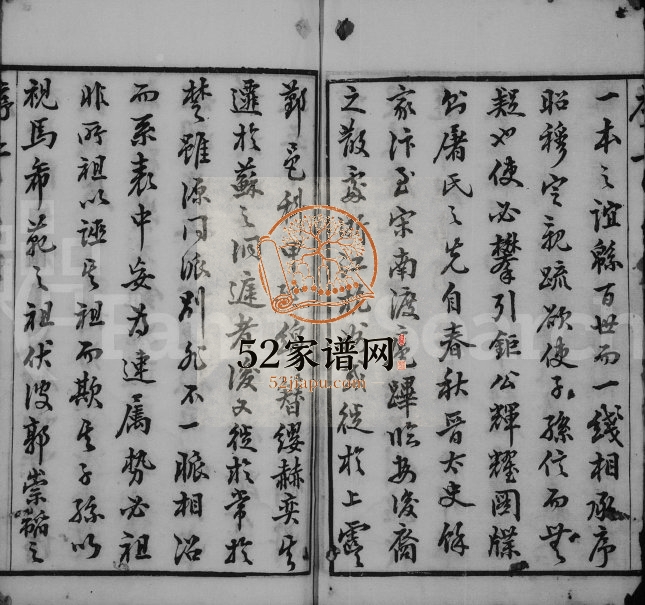 一本之誼緜百世而一綫相承序
昭穆定親疏欲使子孫信而無
疑也使必攀引鉅公輝耀圖牒
屠氏之先自春秋晉太史餘
家汴至宋南渡扈蹕臨安後裔
之散處浙江
徙於上虞
鄞邑科甲
替纓赫奕其
遷於蘇之洞庭者後又徙於常於
楚雖源同派別非不一脈相沿
而系表中妄為連屬勢必祖
非所祖以誣其祖而欺其子孫以
視馬希范之祖伏波郭崇韜之
52家谱网
52jiapu.com